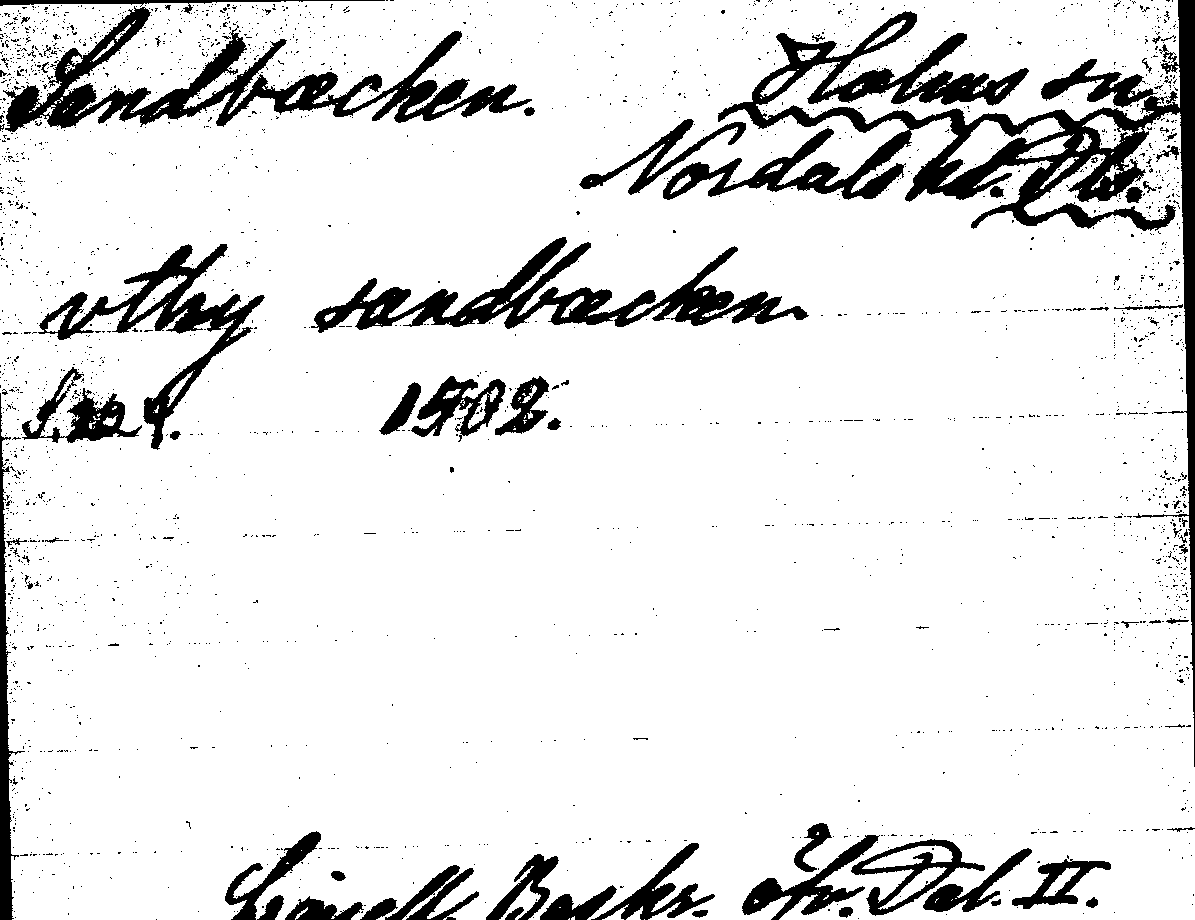 Sandbæcken. Holms sn.
Nordals hd. Dls.
vthy sandbæcken.
S. 224. 1502.
Lignell Beskr. öfv. Dal. II.